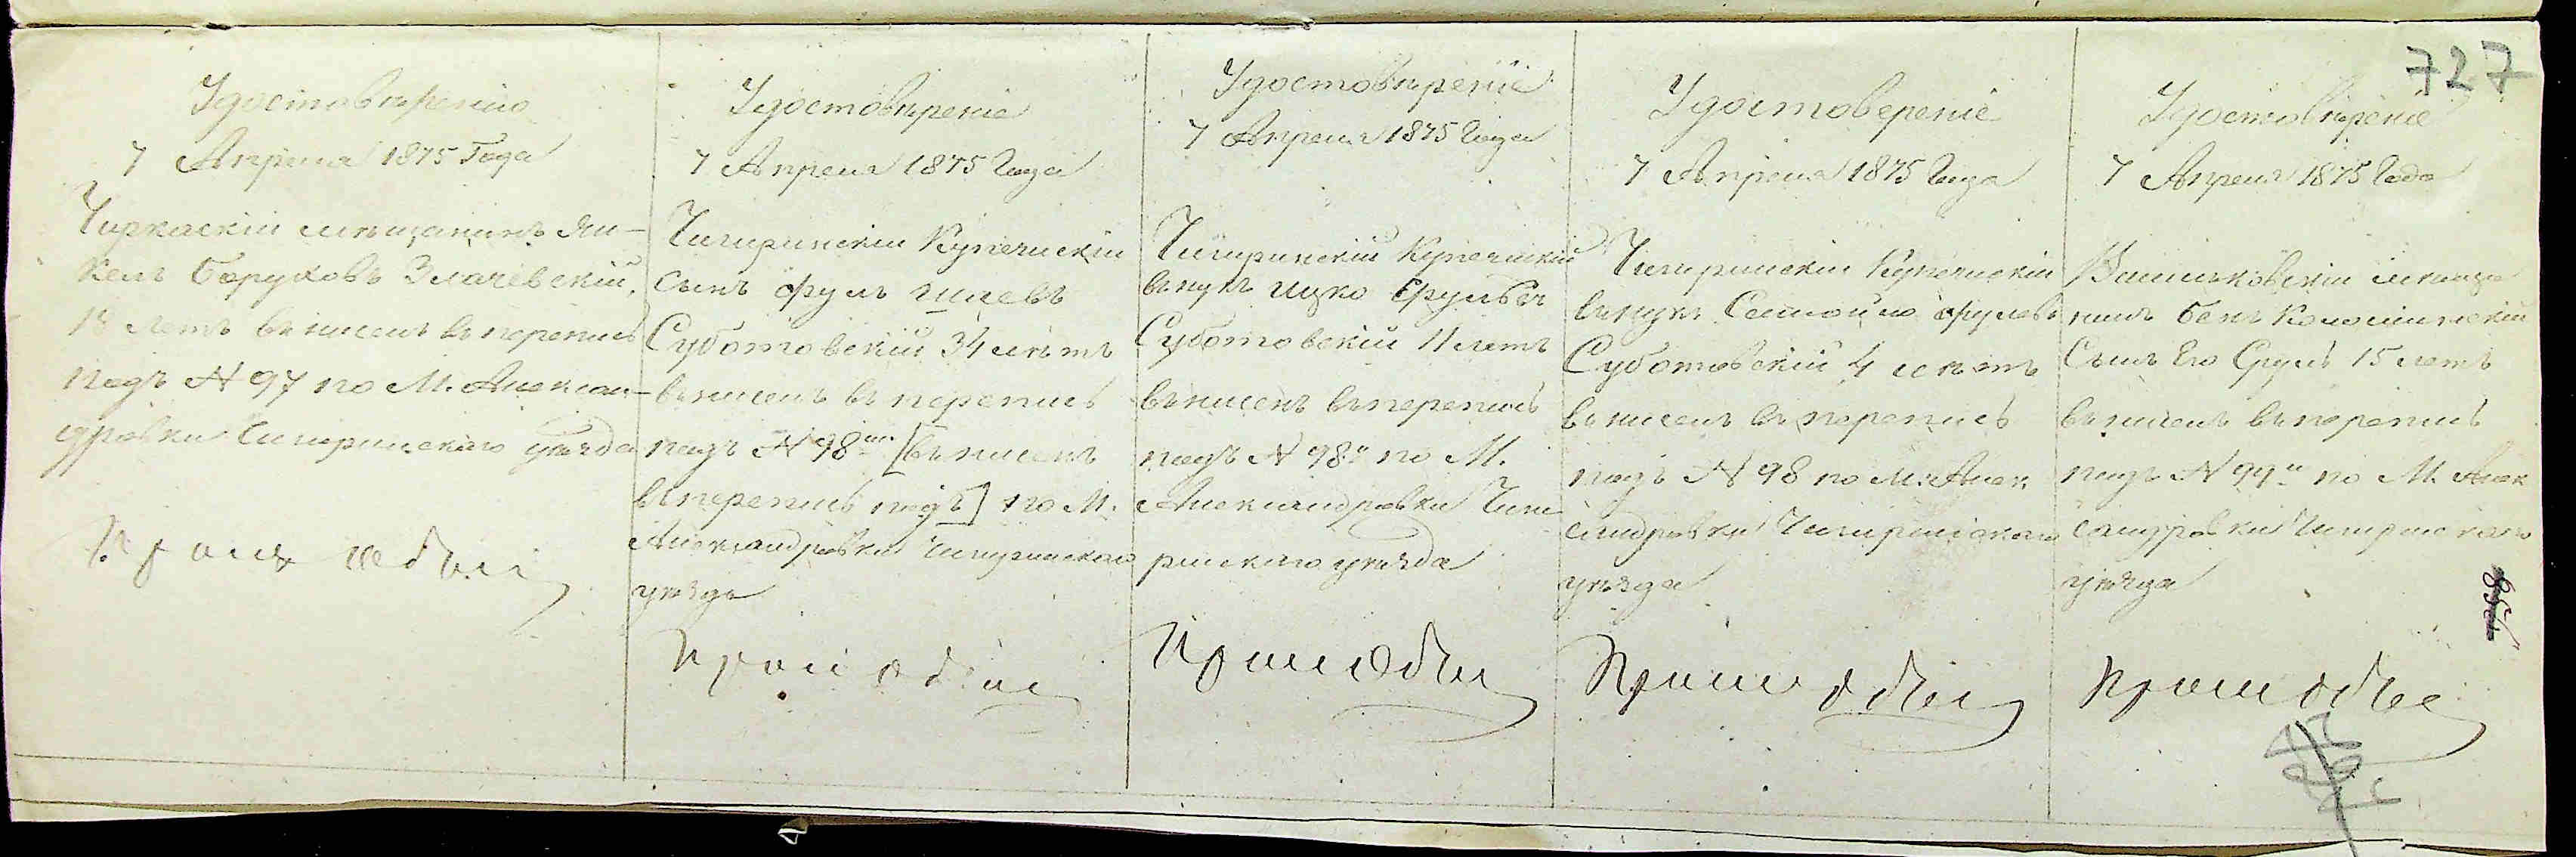 727
Удостовѣренію
7 Апреля 1875 Года
Чиркаскій мѣщанинъ Ян-
кель Боруховъ Злачевскій,
18 летъ вписенъ въ перепись
подъ № 97 по М. Алексан-
дровки Чигиринскаго уѣзда
Удостовѣреніе
7 Апреля 1875 Года
Чигиринскій Купеческій
сынъ Сруль
Суботовскій 34 лѣтъ
вписенъ въ перепись
подъ № 98 [вписенъ
въ перепись подъ] по М.
Александровки Чигиринскаго
уѣзда
Удостовѣреніе
7 Апреля 1875 Года
Чигиринскій Купеческій
внукъ Ицко Срулевъ
Суботовскій 11 летъ
вписенъ въ перепись
подъ № 98 по М.
Александровки Чиги
ринскаго уѣзда
Удостоверенiе
7 Апреля 1875 Года
Чигиринскій Купеческій
внукъ Срулевъ
Суботовскій 4 лѣтъ
вписенъ въ перепись
подъ № 98 по М. Алек
сандровки Чигиринскаго
уѣзда
Удостовѣреніе
7 Апреля 1875 Года
Васильковскій мѣща
нинъ Бенъ
Сынъ Его Сруль 15 летъ
вписенъ въ перепись
подъ № 99 по М. Алек
сандровки Чигиринскаго
уѣзда